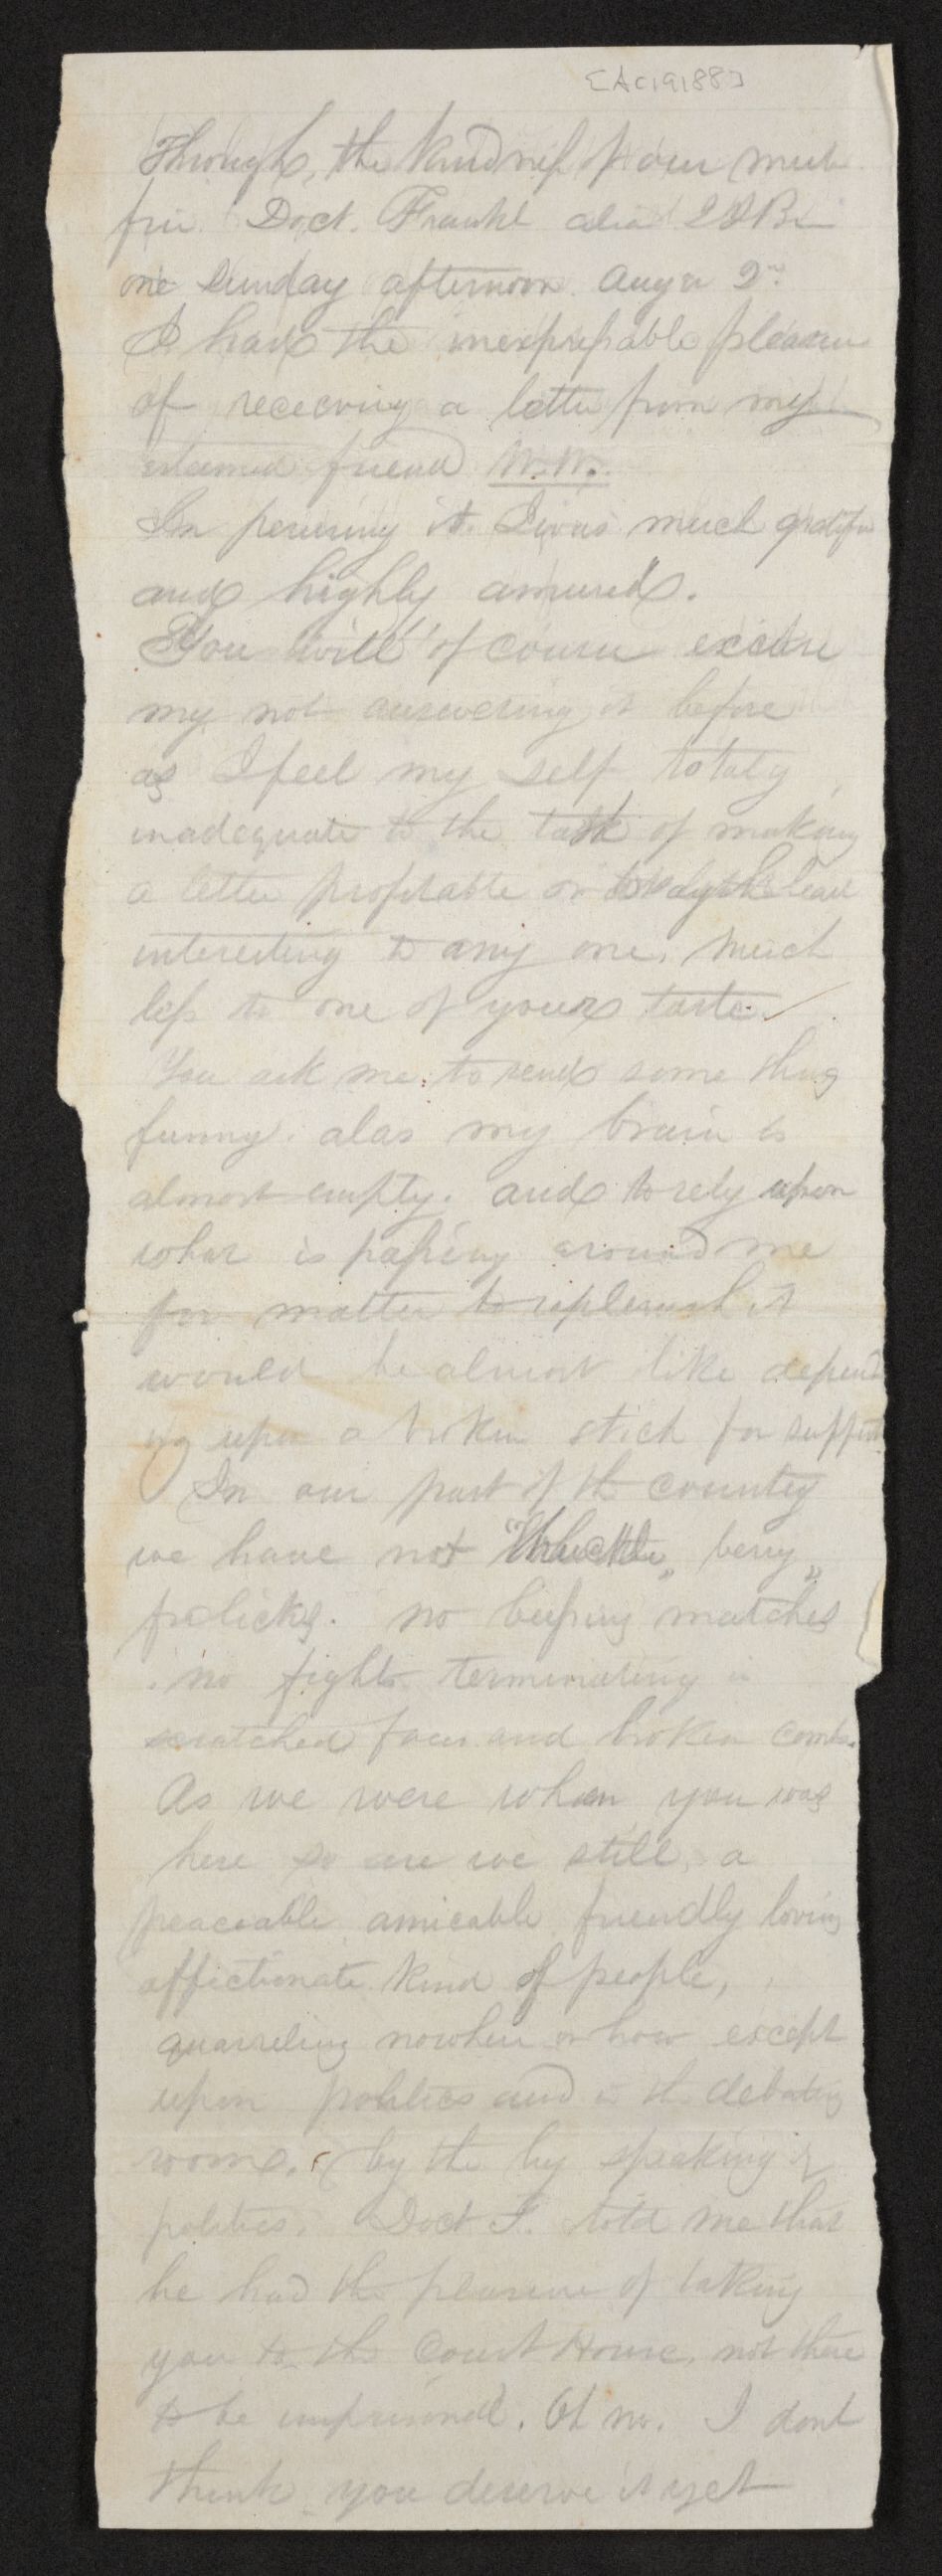 [Ac19188]
Through, the kindness of our
Doct. Frankl
one Sunday afternoon
I have the inexpressable pleasure
of receiving a letter from my
esteemed friend W.W.
In perusing it I was much gratifie
and highly amused.
You will of course excuse
my not answering it before
as I feel my self totaly
inadequate to the task of making
a letter profitable or
interesting to any one, much
less to one of your taste.
You ask me to send some thing
funny. alas my brain is
almost empty. and to rely upon
what is passing around me
for matter to replenish it
would be almost like depend
ing upon a broken stick for support
In our part of the country
we have not berry"
frolicks. no matches
no fights terminating in
scratched faces and broken combs.
As we were when you was
here so are we still, a
peaceable amicable friendly loving
affictionate kind of people,
quarreling nowhere or how except
upon politics and in the debating
room. by the by speaking of
politics. Doct F. told me that
he had the pleasure of taking
you to the Court House, not there
to be imprisoned. Oh no. I dont
think you deserve it yet